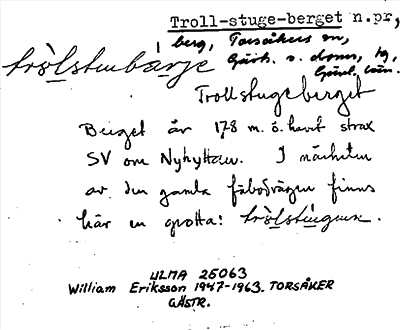 Troll-stuge-berget n.pr,
berg, Torsåkers sn,
Gästr. ö. doms, hg,
Gävl. län.
tròlstuubærje
Trollstugeberget
Berget är 178 m. ö. havet strax
SV om Nyhyttan. I närheten
av den gamla fäbodvägen finns
här en grotta:
ULMA 25063
William Eriksson 1947-1963. TORSÅKER
GÄSTR.